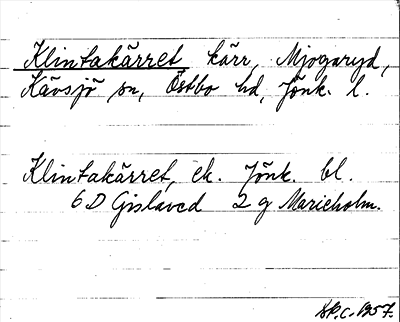 Klintakärret kärr, Mjogaryd,
Kävsjö sn, Östbo hd, Jönk. l.
Klintakärret, ek. Jönk. bl.
6 D Gislaved 2 g Marieholm.
1957.